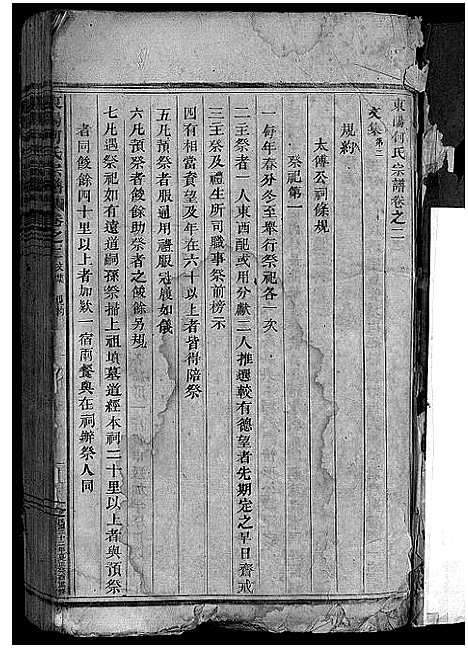 東陽何氏宗譜卷之二
文集第二
規約
太傅公祠條規
祭祀第一
一每年春分冬至舉行祭祀各一次
二主祭者一人東西配或用分獻二人推選較有德望者先期定之早日齊戒
三主祭及禮生所司職事祭前榜示
四有相當資望及年在六十以上者皆得陪祭
五凡預祭者服通用禮服冠履如儀
六凡預祭者餕餘助祭者之餕餘另規
七凡遇祭祀如有遠道嗣孫祭掃上祖墳墓道經本祠二十里以上者與預祭
者同餕餘四十里以上者加歉一宿兩餐與在祠辦祭人同
東陽何氏宗譜